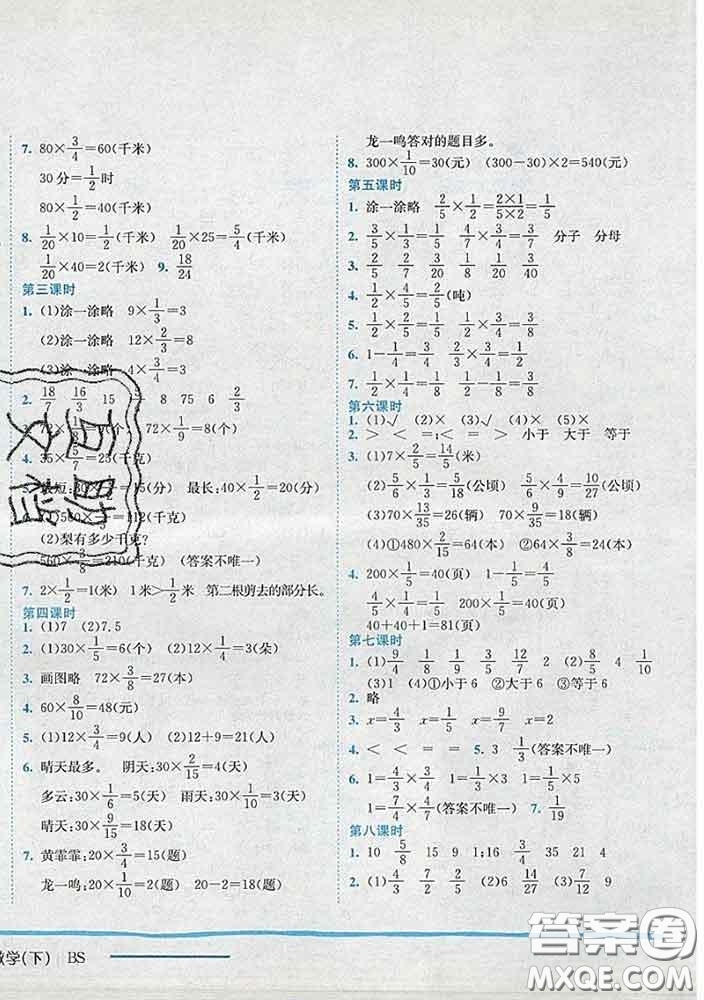 7. 80×3/4=60(千米)
30分=1/2时
80×1/2=40(千米)
8. 1/20×10=1/2(千米) 1/20×25=5/4(千米)
1/20×40=2(千米) 9. 18/24
第三课时
1. (1)涂一涂略 9×1/3=3
(2)涂一涂略 12×2/3=8
(3)涂一涂略 4×3/4=3
2. 18/7 16/3 15 5/8 8 75 6 2/3
72×1/9=8(个)
4. 35×5/7=25(千克)
(分) 最长:40×1/2=20(分)
6. (1)560×
(千克)
(2)梨有多少千克?
560×3/8=210(千克) (答案不唯一)
7. 2×1/2=1(米) 1米>1/2米 第二根剪去的部分长。
第四课时
1. (1)7 (2)7.5
2. (1)30×1/5=6(个) (2)12×1/4=3(朵)
3. 画图略 72×3/8=27(本)
4. 60×8/10=48(元)
5. (1)12×3/4=9(人) (2)12+9=21(人)
6. 晴天最多。 阴天:30×2/15=4(天)
多云:30×1/6=5(天) 雨天:30×1/10=3(天)
晴天:30×9/15=18(天)
7. 黄霏霏:20×3/4=15(题)
龙一鸣:20×1/10=2(题) 20-2=18(题)
龙一鸣答对的题目多。
8. 300×1/10=30(元) (300-30)×2=540(元)
第五课时
1. 涂一涂略 2/5×1/2=2×1/5×2=1/5
2. 3/5×1/3=1/5 3/4×4/7=3/7 分子 分母
3. 2/5×3/4=3/10
4. 1/2×4/5=2/5(吨)
5. 1/2×1/4=1/8 1/2×3/4=3/8
6. 1-1/4=3/4 2/3×3/4=1/2
7. 1/2×1/4=1/8 1/2-1/8=3/8
第六课时
1. (1)√ (2)× (3)√ (4)× (5)×
2. > < =;< = > 小于 大于 等于
3. (1)7×2/5=14/5(米)
(2)5/6×3/4=5/8(公顷) 5/6×4/9=10/27(公顷)
(3)70×13/35=26(辆) 70×4/10=28(辆)
(4)①480×2/15=64(本) ②64×3/8=24(本)
4. 200×1/5=40(页) 1-1/5=4/5
4/5×1/4=1/5 200×1/5=40(页)
40+40+1=81(页)
第七课时
1. (1)9/4 1/8 1/9 3/5 12/7 2 (2)8/5 4 1/10
(3)1 (4)①小于6 ②大于6 ③等于6
2. 略
3. x=4/3 x=1/5 x=9/7 x=2
4. < < = = 5. 3 1/3(答案不唯一)
6. 1=4/3×3/4=1/5×5=1/9×9
1=7/4×4/7(答案不唯一) 7. 1/19
第八课时
1. 10 5/8 15 9 1;16 35 21 4
2. (1)4/3 7/2 2/5 (2)6 14/5 (3)7/12 9
数学(下) BS
答案圈
MXQE.COM